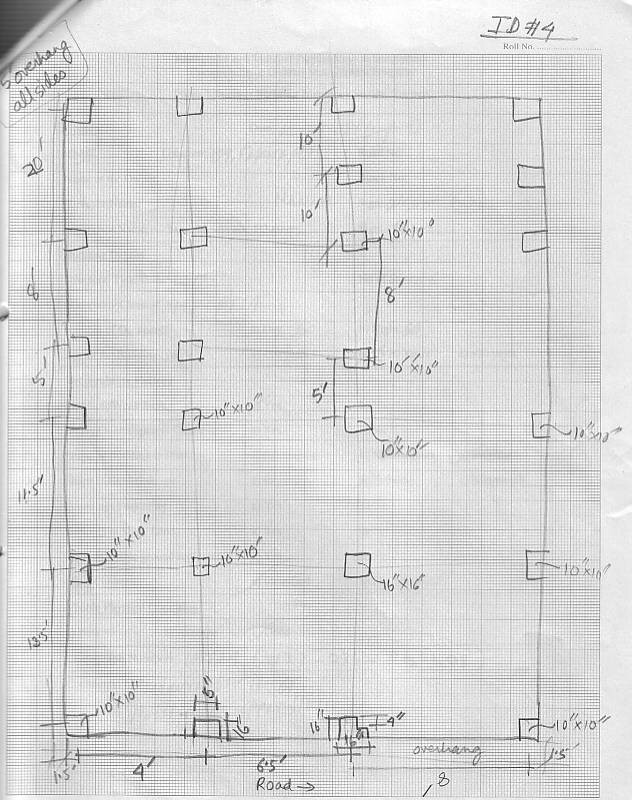 ID#4
Roll No.
5' overhang
all sides
20'
10'
10'
10"x10"
8'
8'
10"x10"
5'
5'
10"x10"
10"x10"
10"x10"
11.5'
10"x10"
10"x10"
16"x16"
10"x10"
13.5'
10"x10"
6"
16"
4"
16"
10"x10"
overhang
1.5'
4'
6.5'
8
1.5'
Road →